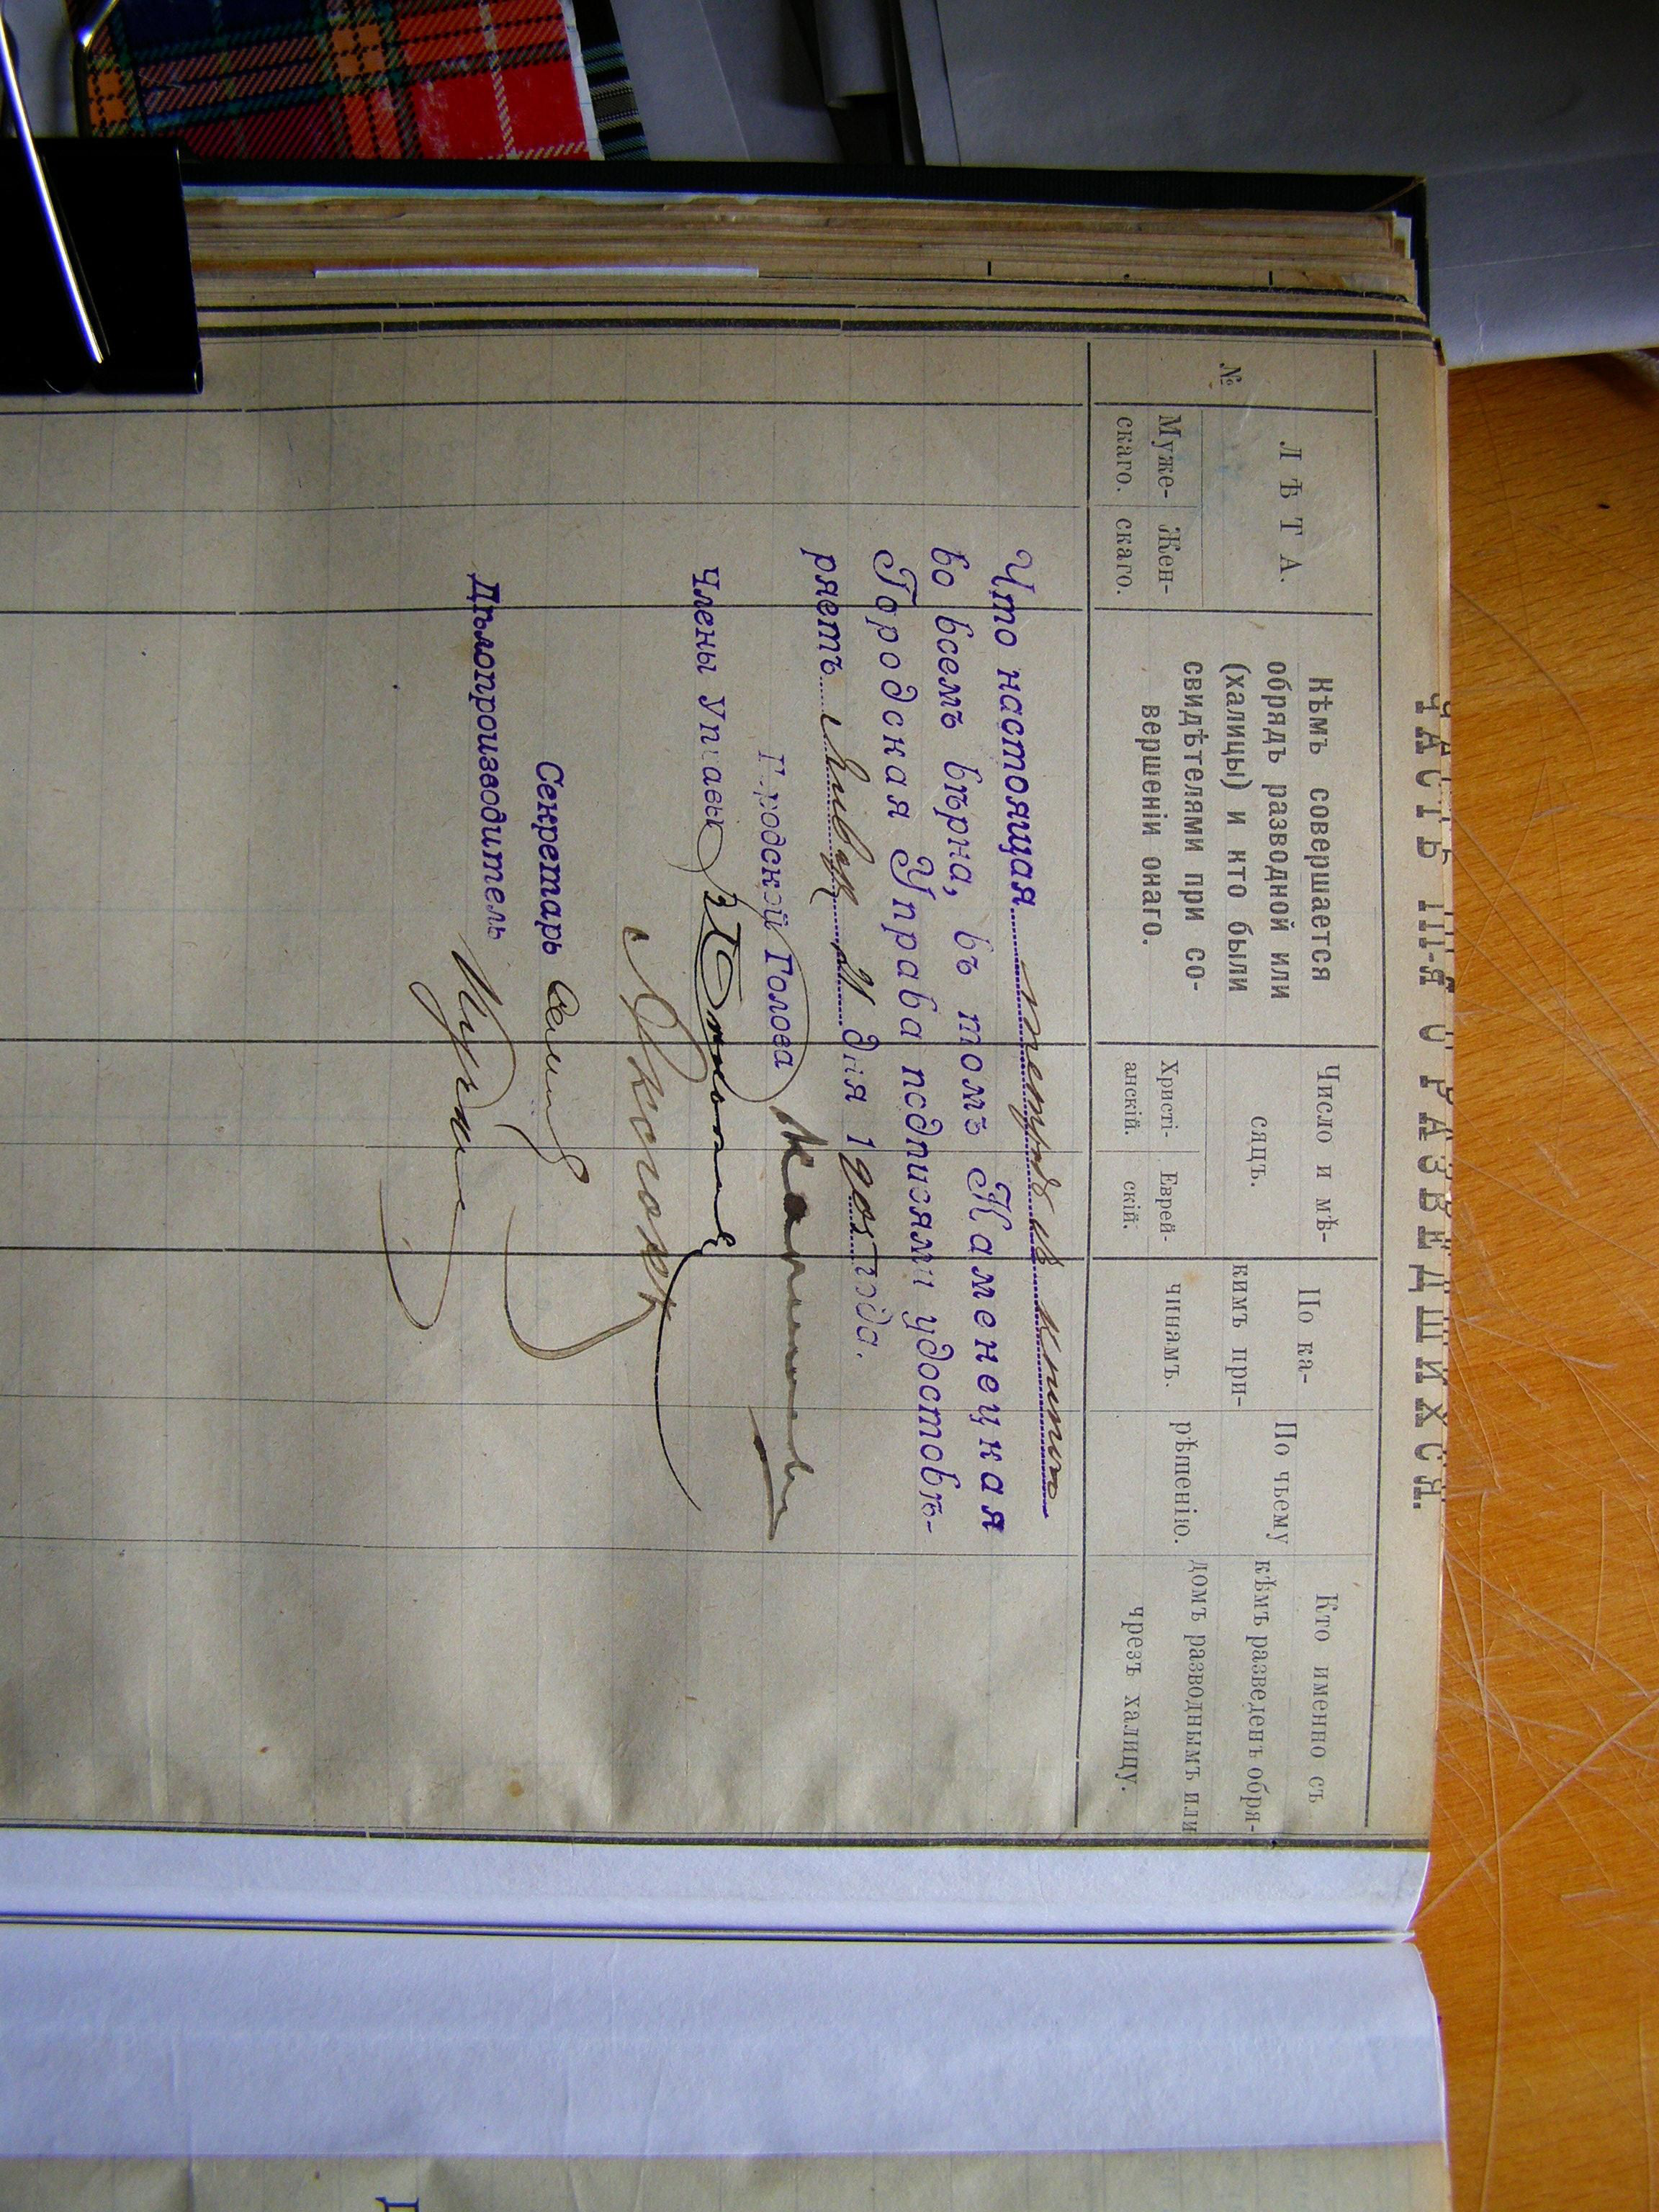 ЧАСТЬ III-Я О РАЗВЕДШИХСЯ.
№
ЛѢТА.
Муже-
скаго.
Жен-
скаго.
Кѣмъ совершается
обрядъ разводной или
(халицы) и кто были
свидѣтелями при со-
вершеніи онаго.
Число и мѣ-
сяцъ.
Христі-
анскій.
Еврей-
скій.
По ка-
кимъ при-
чинамъ.
По чьему
рѣшенію.
Кто именно съ
кѣмъ разведенъ обря-
домъ разводнымъ или
чрезъ халицу.
Что настоящая метрич. книга
во всемъ вѣрна, въ томъ Каменецкая
Городская Управа подписями удостовѣ-
ряетъ Января дня 190 года.
Городской Голова
Члены Управы
Секретарь
Дѣлопроизводитель